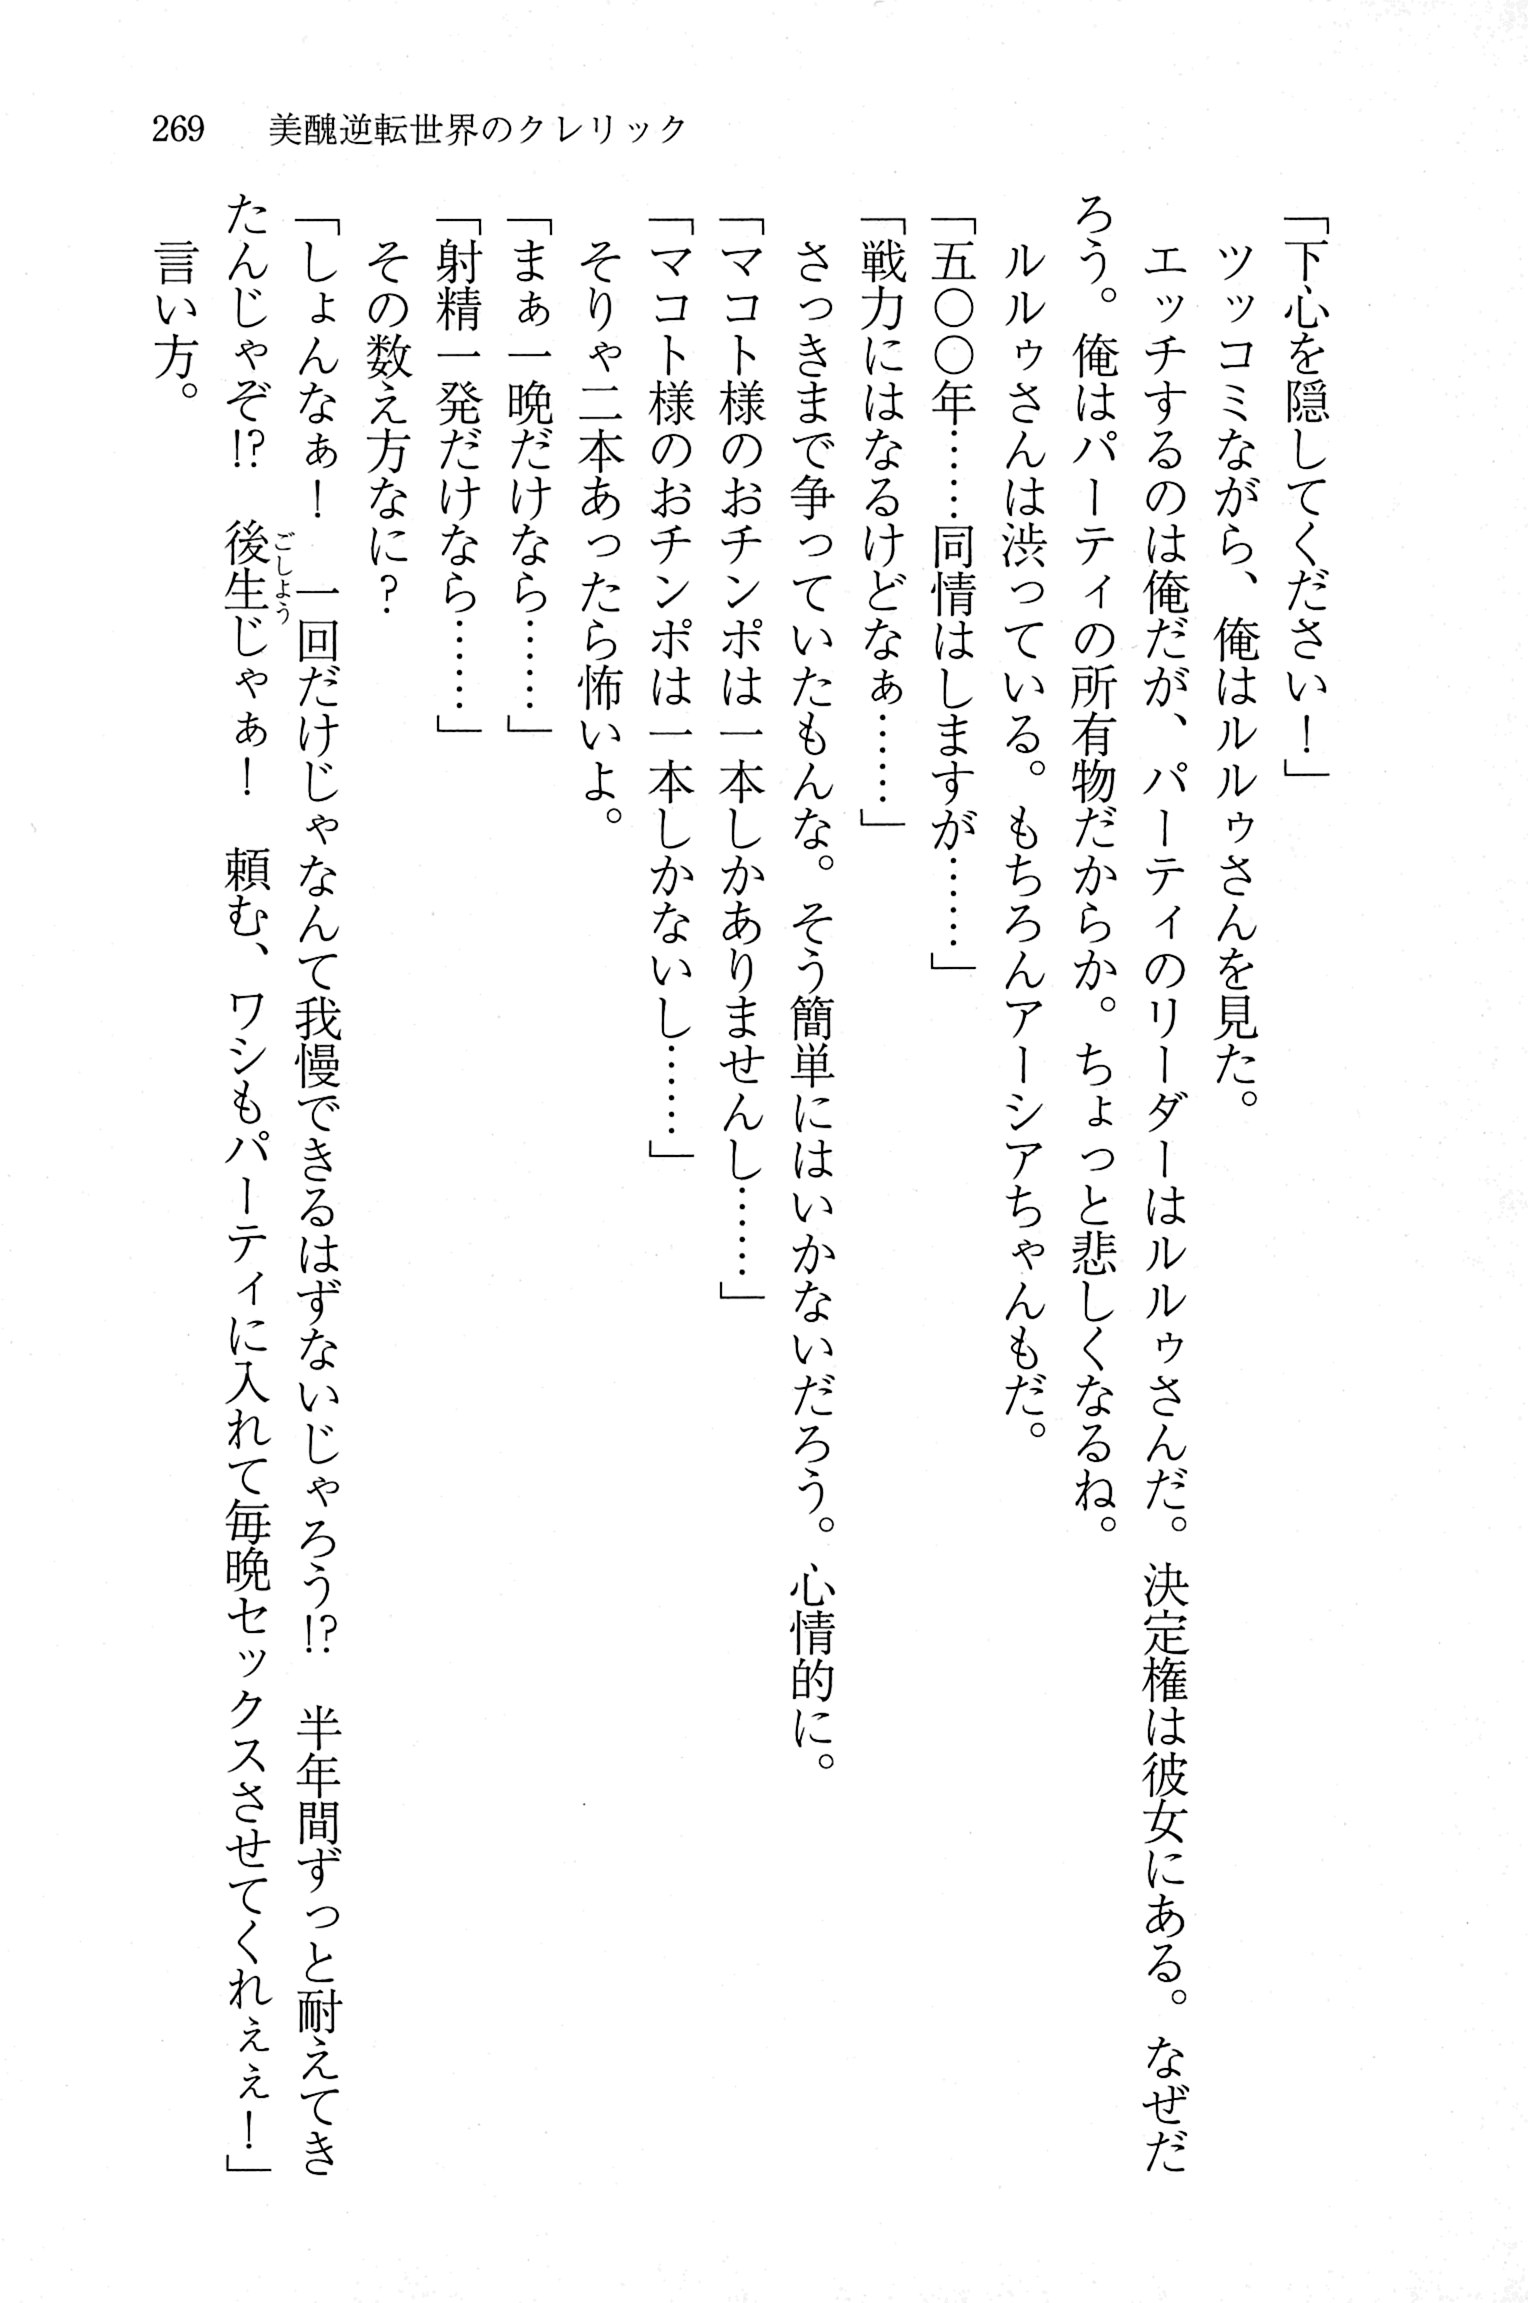 269　美醜逆転世界のクレリック
「下心を隠してください！」
　ツッコミながら、俺はルルゥさんを見た。
　エッチするのは俺だが、パーティのリーダーはルルゥさんだ。決定権は彼女にある。なぜだ
ろう。俺はパーティの所有物だからか。ちょっと悲しくなるね。
　ルルゥさんは渋っている。もちろんアーシアちゃんもだ。
「五〇〇年……同情はしますが……」
「戦力にはなるけどなぁ……」
　さっきまで争っていたもんな。そう簡単にはいかないだろう。心情的に。
「マコト様のおチンポは一本しかありませんし……」
「マコト様のおチンポは一本しかないし……」
　そりゃ二本あったら怖いよ。
「まぁ一晩だけなら……」
「射精一発だけなら……」
　その数え方なに？
「しょんなぁ！　一回だけじゃなんて我慢できるはずないじゃろう!?　半年間ずっと耐えてき
たんじゃぞ!?　後生じゃぁ！　頼む、ワシもパーティに入れて毎晩セックスさせてくれぇぇ！」
ごしよう
　言い方。